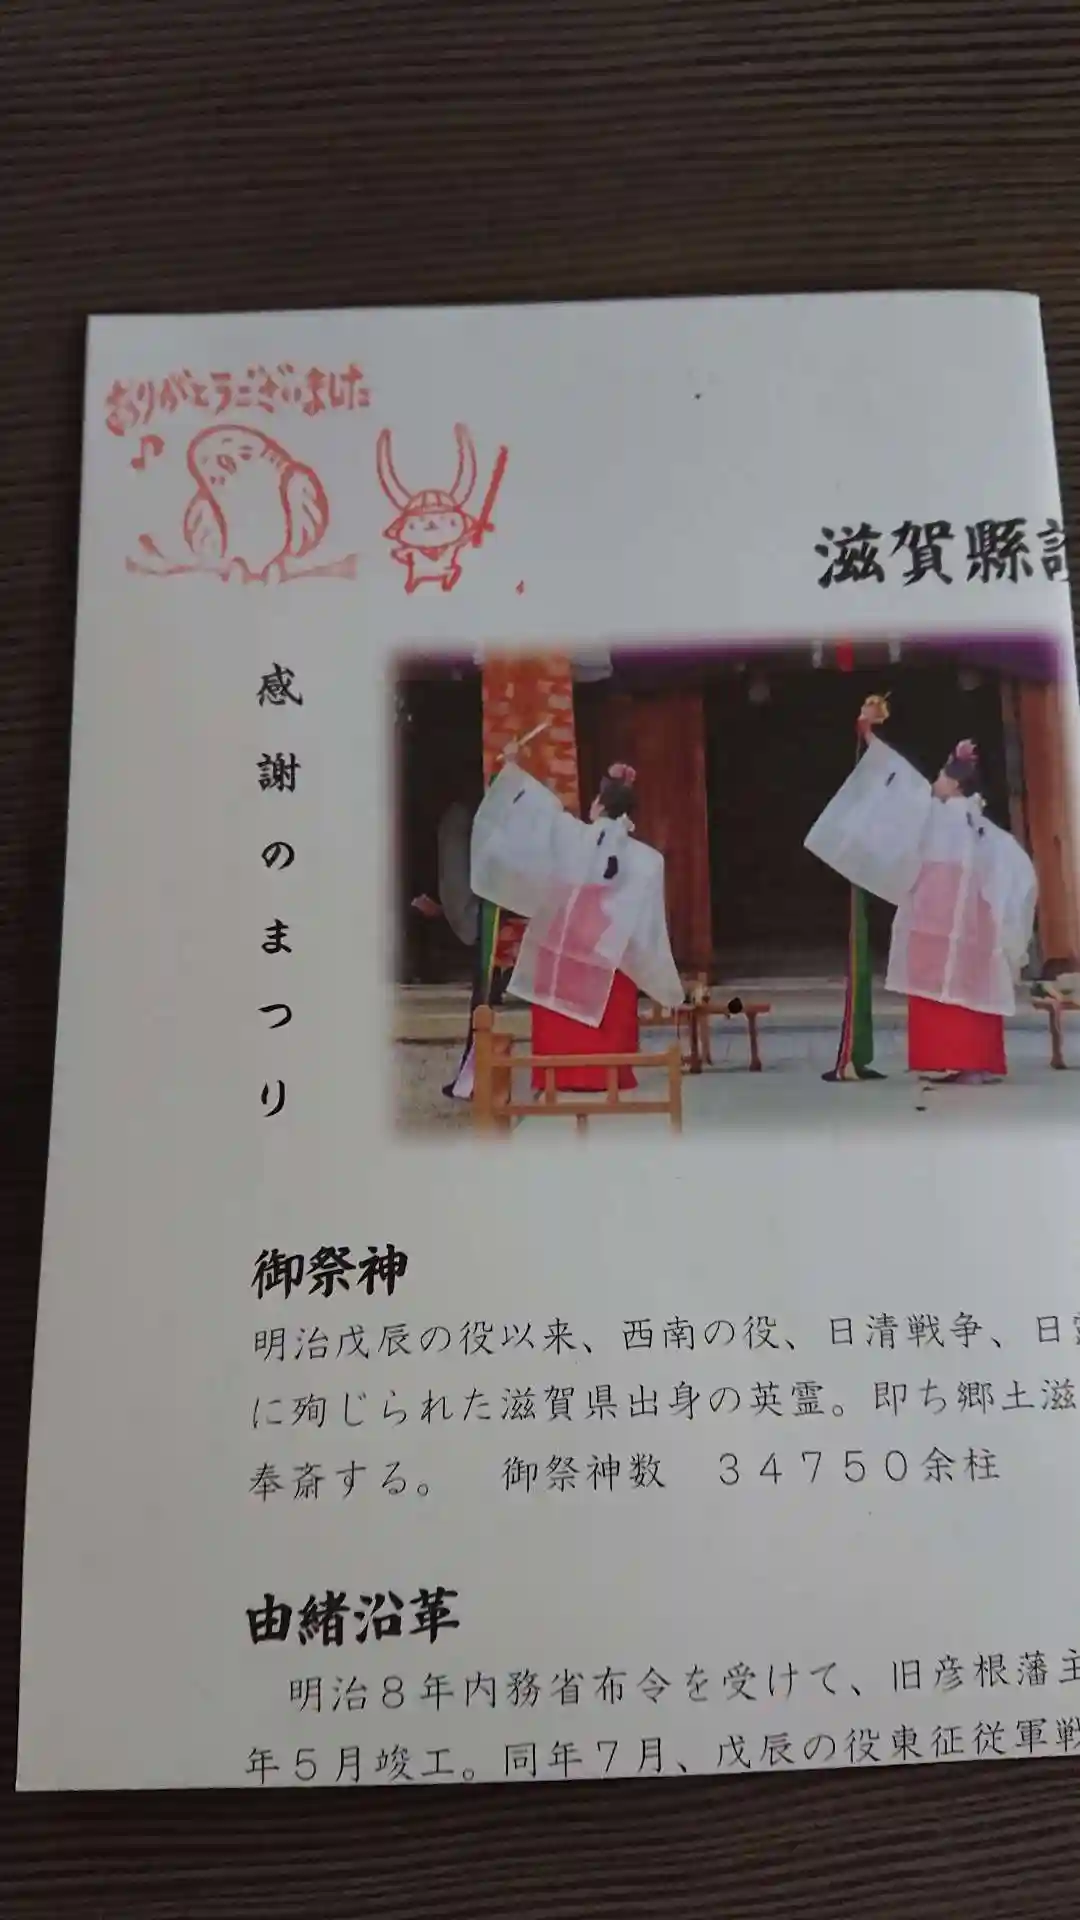 ありがとうございました
滋賀縣
感謝のまつり
御祭神
明治戊辰の役以来、西南の役、日清戦争、日
に殉じられた滋賀県出身の英霊。即ち郷土滋
奉斎する。　御祭神数　３４７５０余柱
由緒沿革
明治８年内務省布令を受けて、旧彦根藩主
年５月竣工。同年７月、戊辰の役東征従軍戦